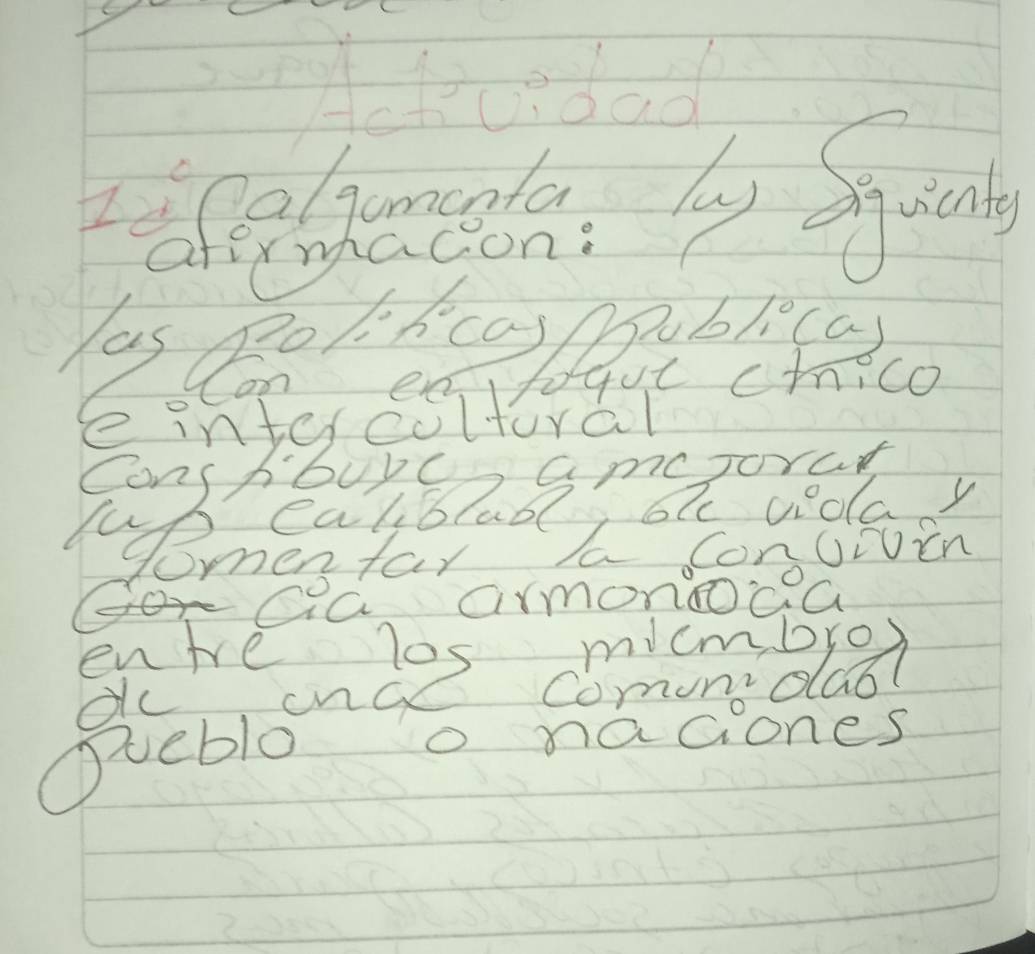 Actividad
1 argumenta las Siguientes
afirmacion:
las politicas publicas
Con enfoque etnico
e intercultural
Constibuye a mejorar
la calidad de vida y
fomentar la conviven
Con cia armonio cia
entre los miembros
de una comunidad
pueblo o naciones